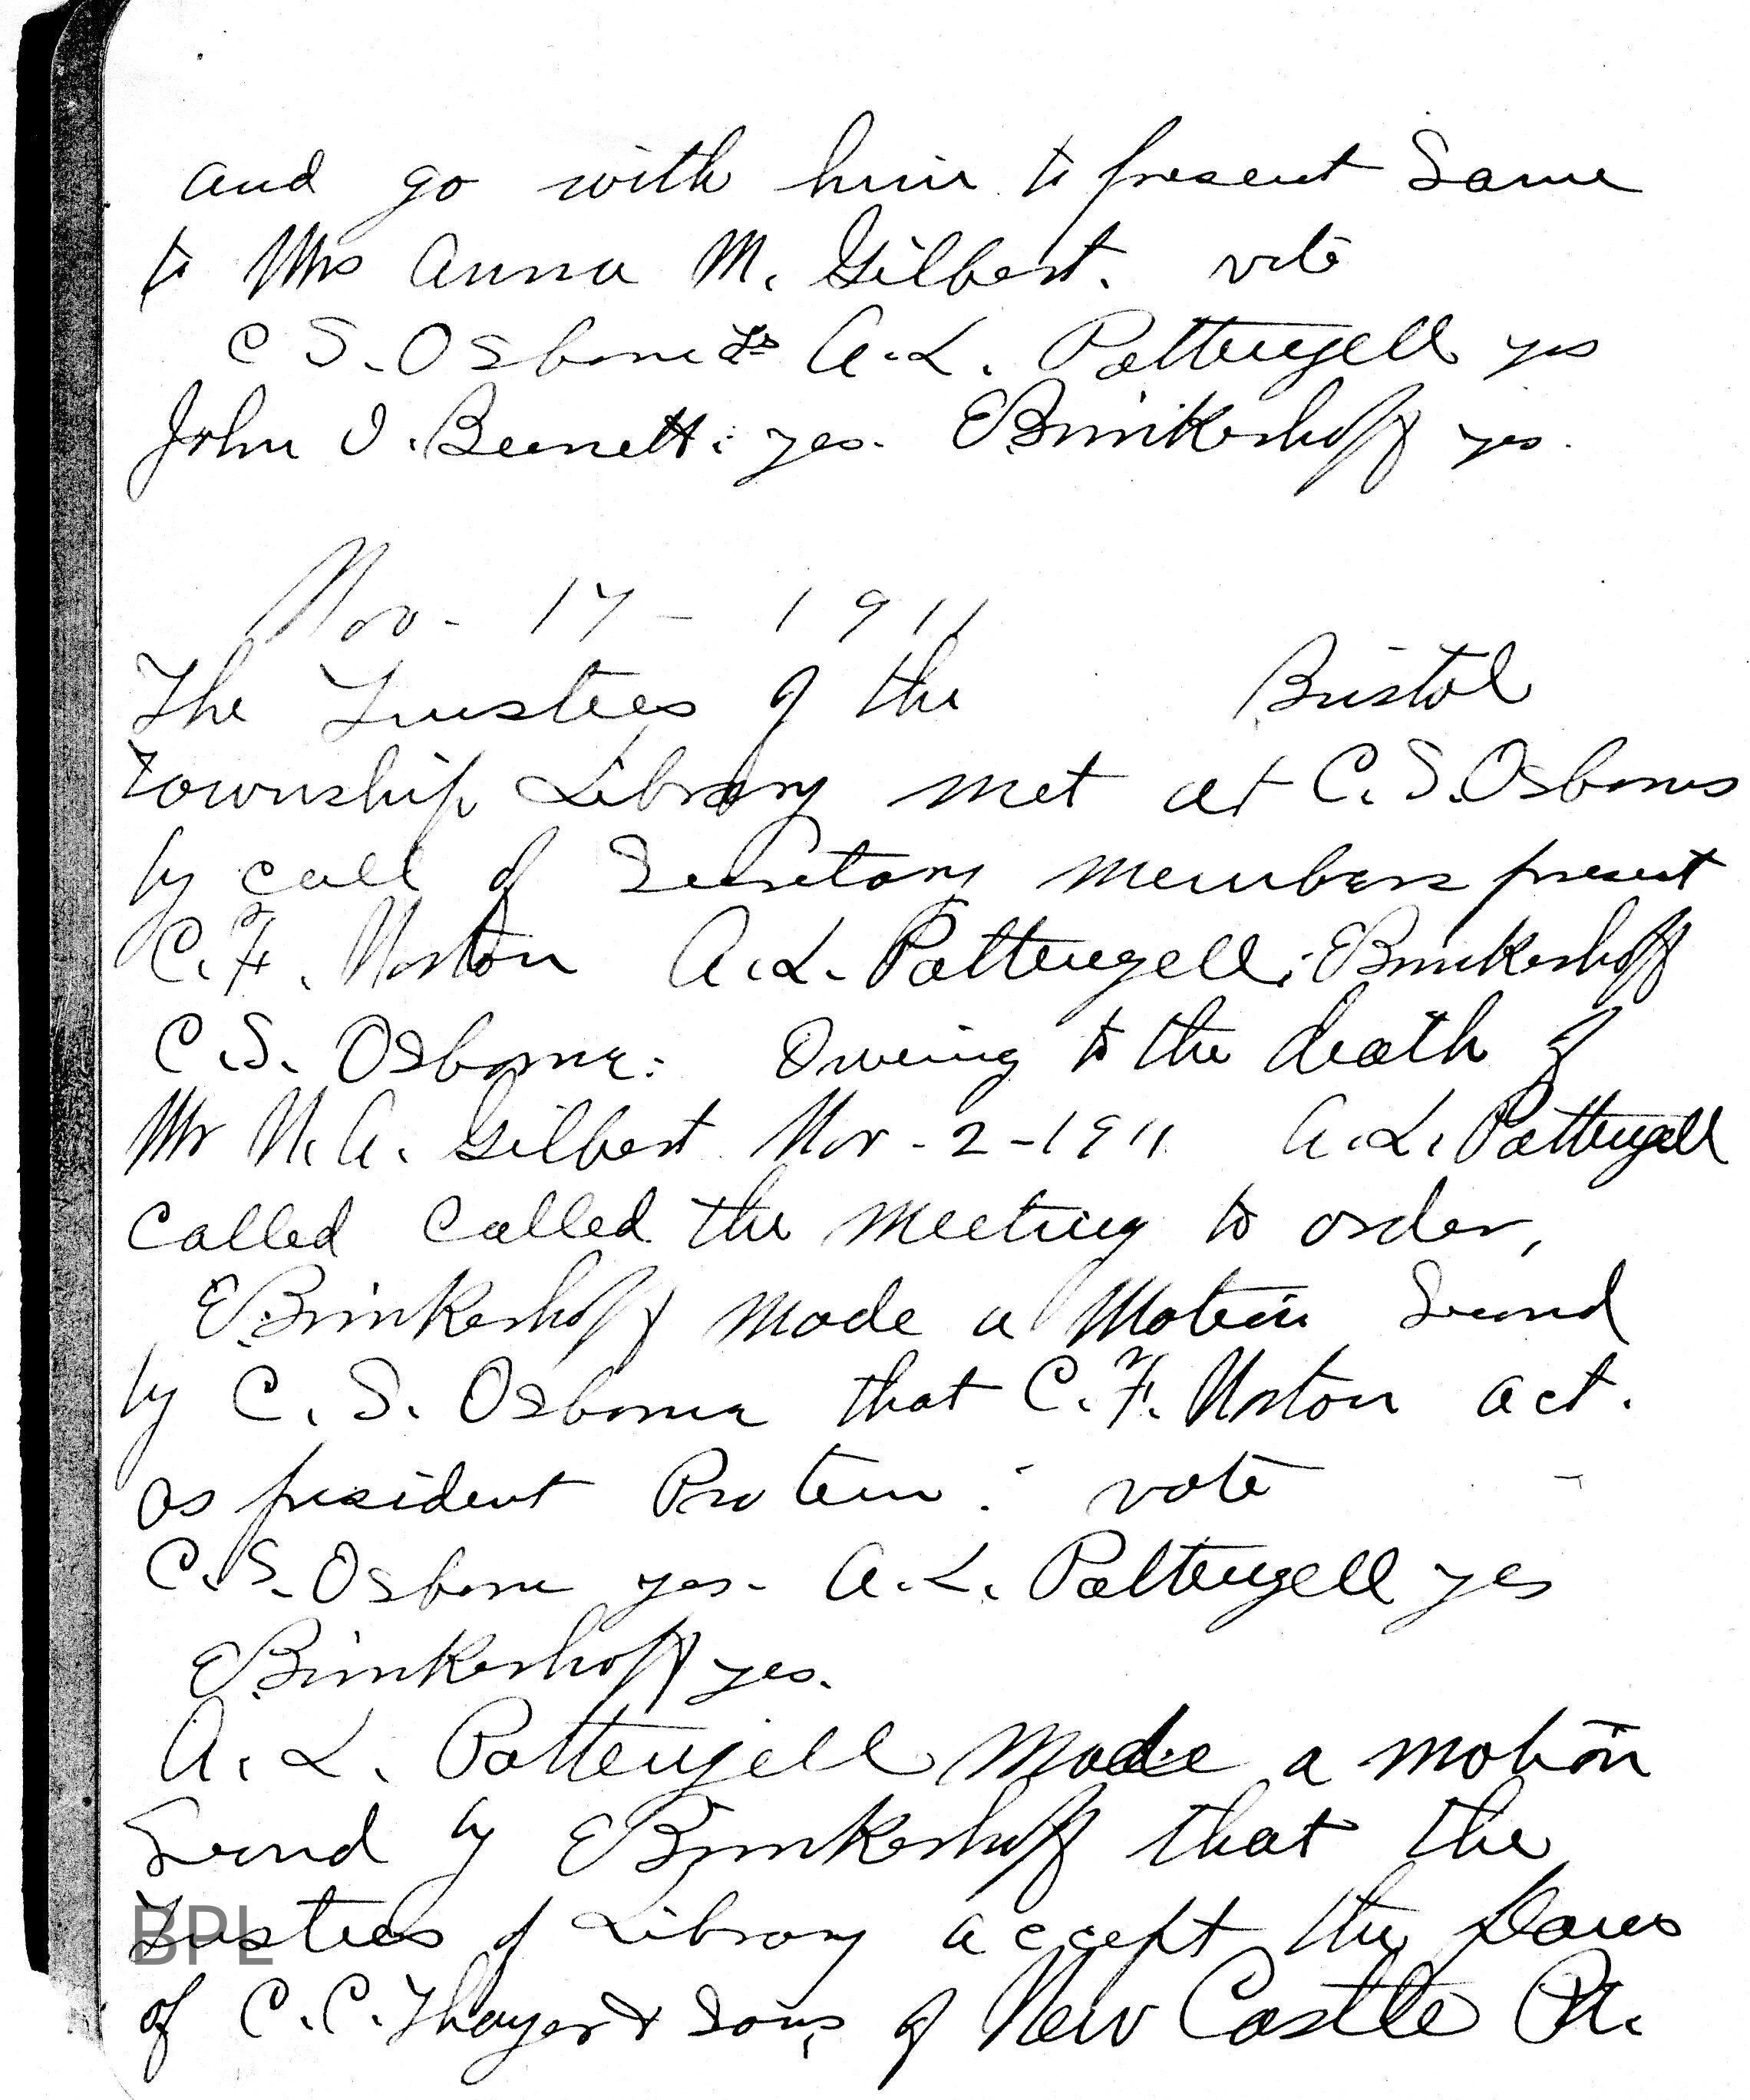 and go with him to present Same
to Mrs Anna M. Gilbert. vote
C S. Osborne yes A. L. Pattengell yes
John I. Bennett: yes. E Brinkerhoff yes.
Nov - 17 - 1911
The Trustees of the Bristol
township Library met at C. S. Osbornes
by call of Secretary members present
C. F. Norton A. L. Pattengell: E Brinkerhoff
C. S. Osborne: Owing to the death of
Mr N. A. Gilbert Nov - 2 - 1911 A. L. Pattengell
called called the meeting to order,
E Brinkerhoff made a Motion Second
by C. S. Osborne that C. F. Norton act.
as president Protem: vote
C. S. Osborne yes - A. L. Pattengell yes
E Brinkerhoff yes.
A. L. Pattengell Made a motion
Second by E Brinkerhoff that the
Trustees of Library accept the plans
of C. C. Thayer & Sons, of New Castle Pa.
BPL